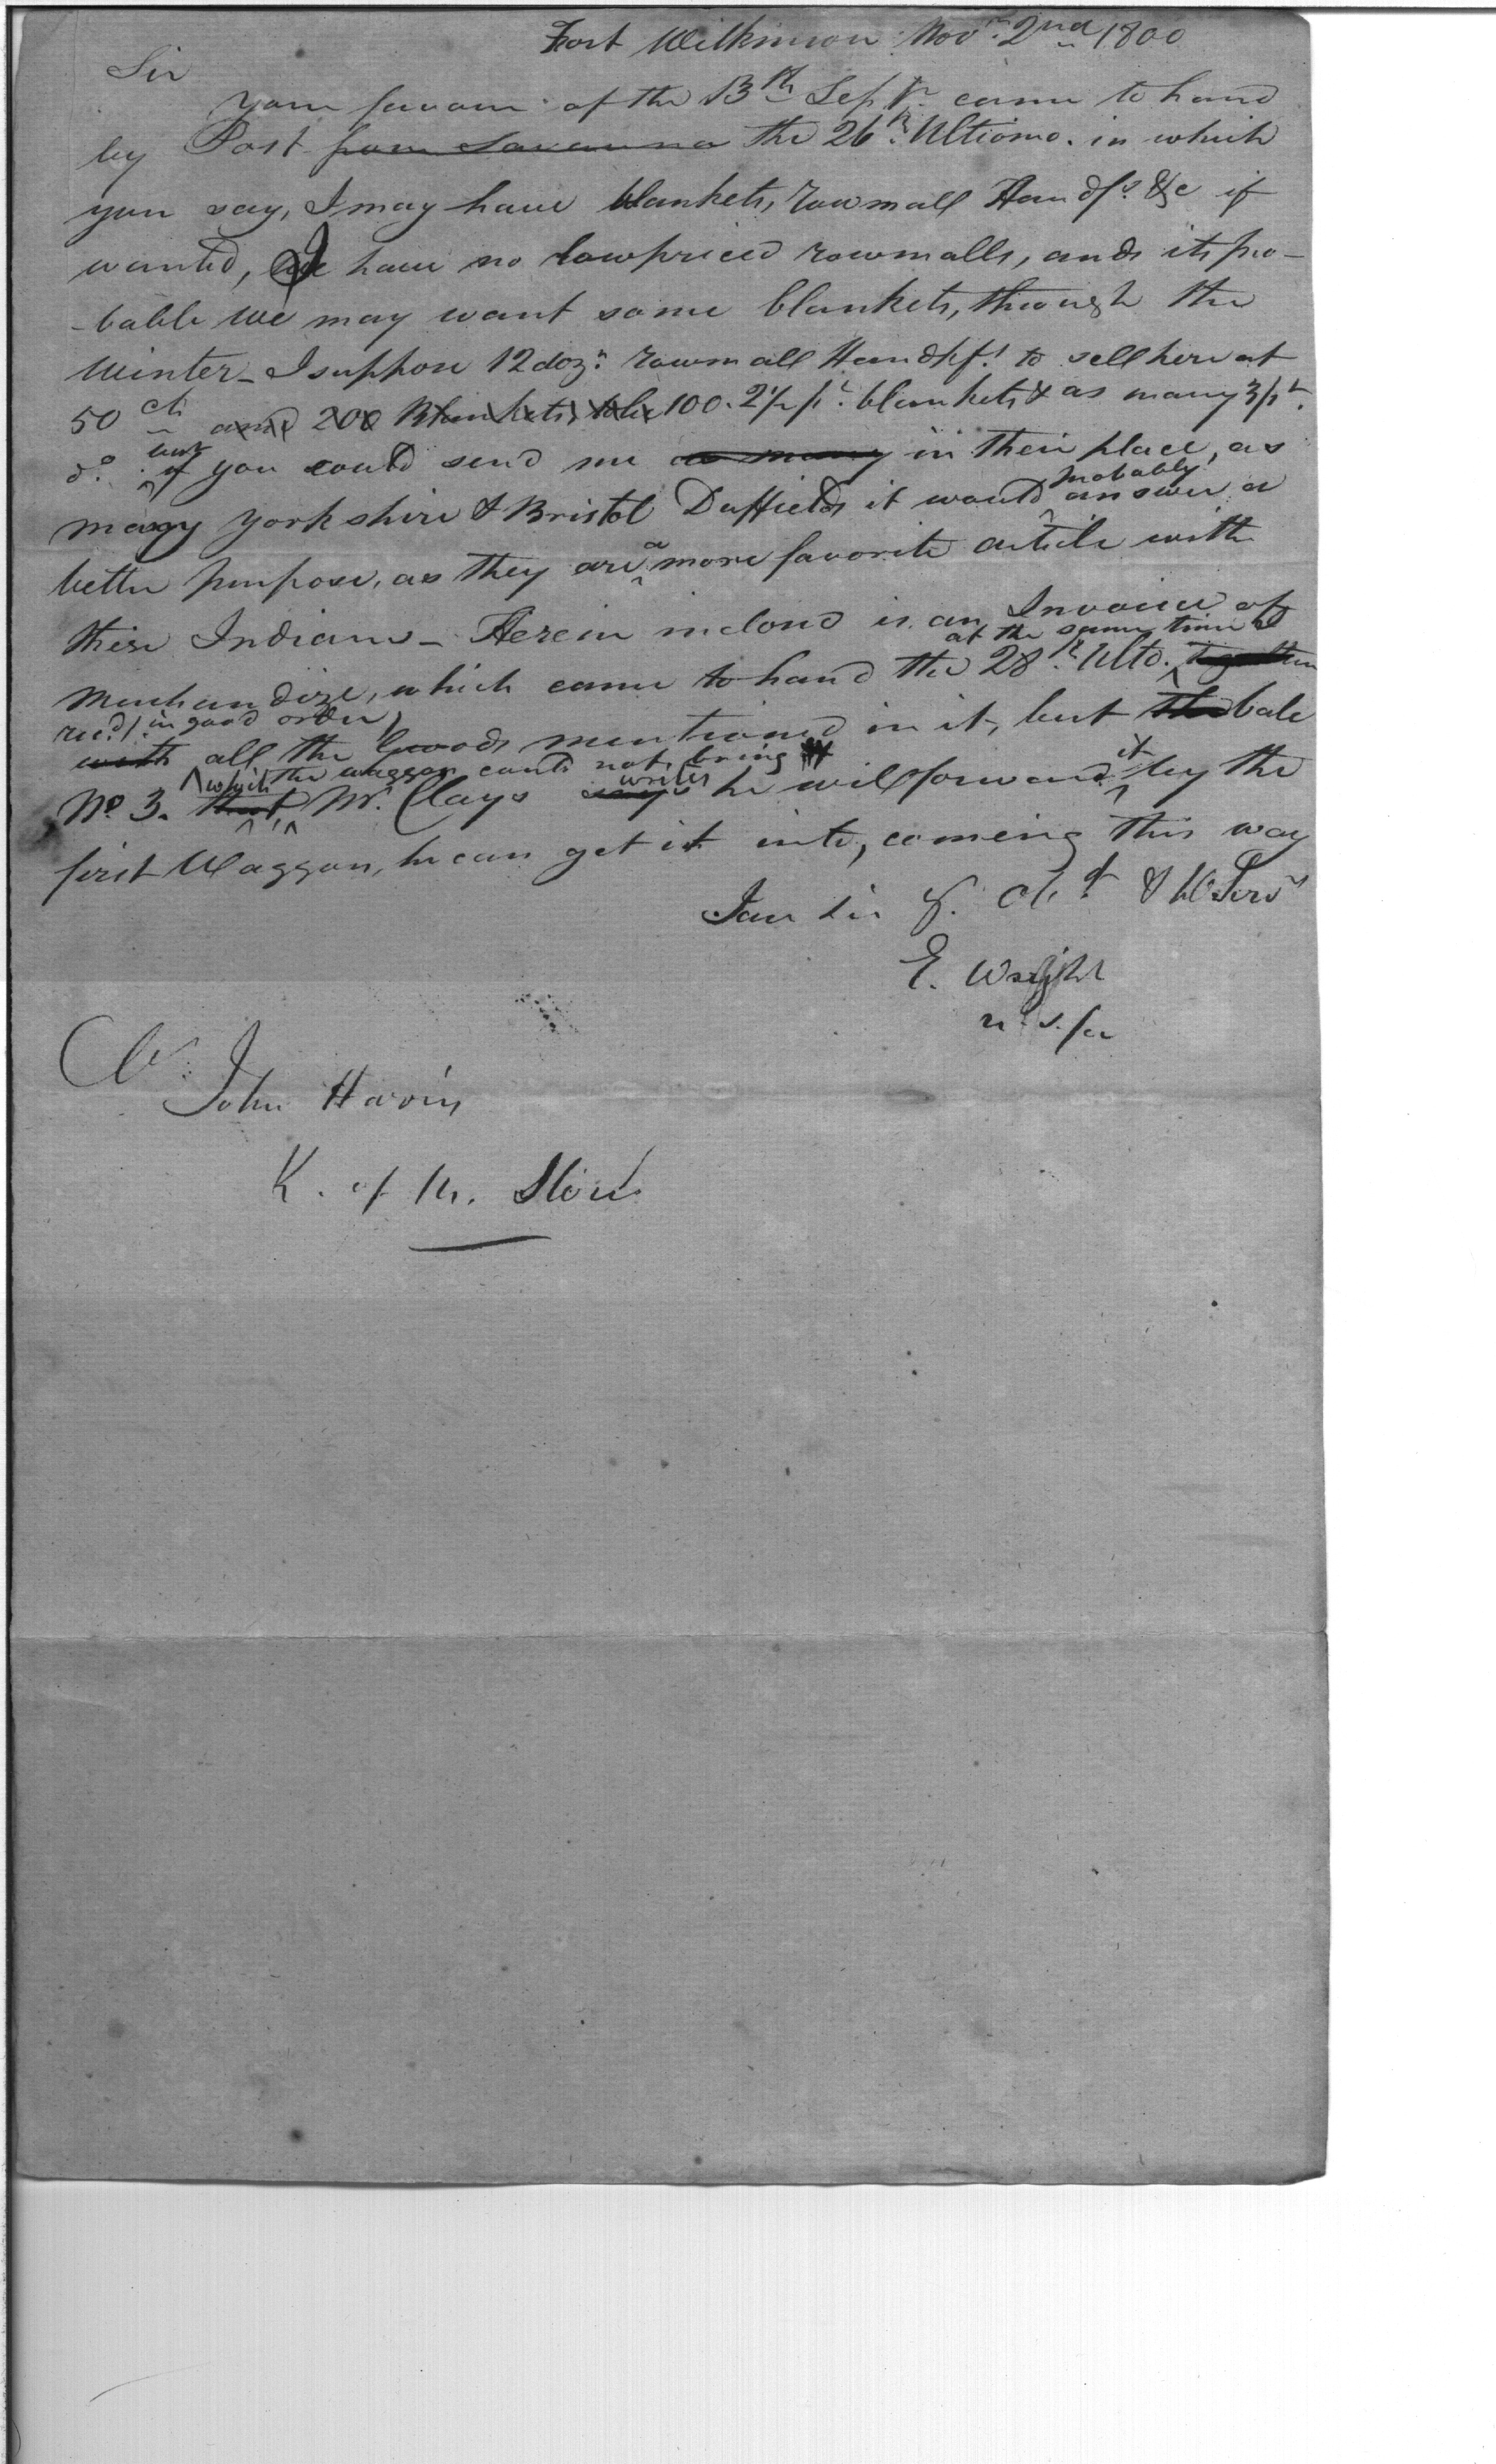 Fort Wilkinson Novr. 2nd 1800
Sir
your favour of the 13th Sepr. came to hand
by Post from Savanna the 26th. Ultiomo. in which
you say, I may have blankets, rowmall Handfs. &c if
wanted, I have no lowpriced rowmalls, and its pro-
-bable we may want some blankets, through the
Winter - I suppose 12 dozn. rowmall Handkfs. to sell here at
50 cts and 200 Blankets, 100. 2½ pt. blankets & as many 3 pt.
do. but if you could send me as many in their place, as
many yorkshire & Bristol Duffields it would probably answer a
better purpose, as they are a more favorite article with
these Indians - Herein inclosd is an Invoice of
merchandize, which came to hand the 28th. Ulto. together at the same time
with recd. in good order all the Goods mentioned in it, but the bale
No. 3. that which the waggon could not bring Mr. Clays says writes he will forward it by the
first Waggon, he can get it into, coming this way
I am Sir yr. Obt. & H Servt
E. Wright
John Harris
K. of M. Stores